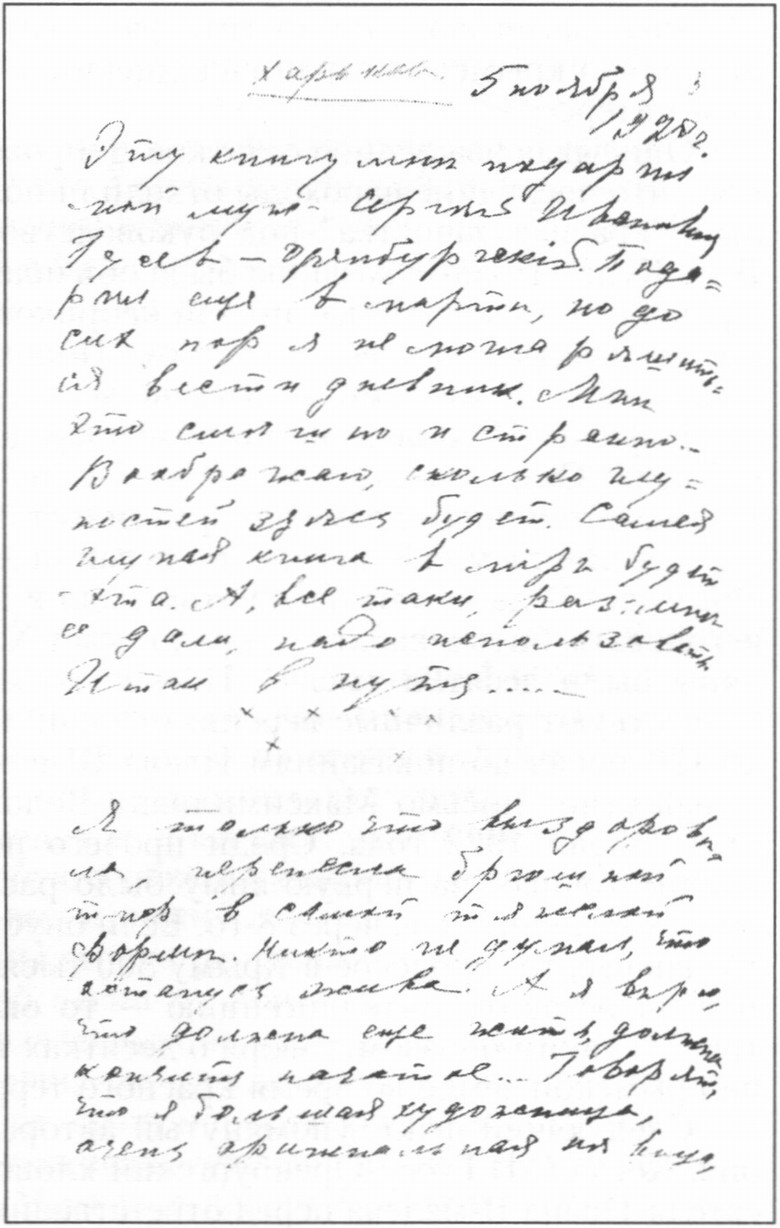 Харьков. 5 ноября
192 г.
Эту книгу мне подарил
мой муж – Сергей Иванович
Гусев – Оренбургскій. Пода=
рил еще в марте, но до
сих пор я не могла решить=
ся вести дневник. Мне
это смешно и странно.
Воображаю, сколько глу=
постей здесь будет. Самая
глупая книга в мире будет
– эта. А, все таки, раз мне
ее дали, надо использовать
Итак в путь...
× × × ×
× ×
Я только что выздорове=
ла – перенесла брюшной
тиф в самой тяжелой
форме. Никто не думал, что
останусь жива. А я верю,
что должна еще жить, должна
кончить начатое... Говорят,
что я большая художница,
очень оригинальная